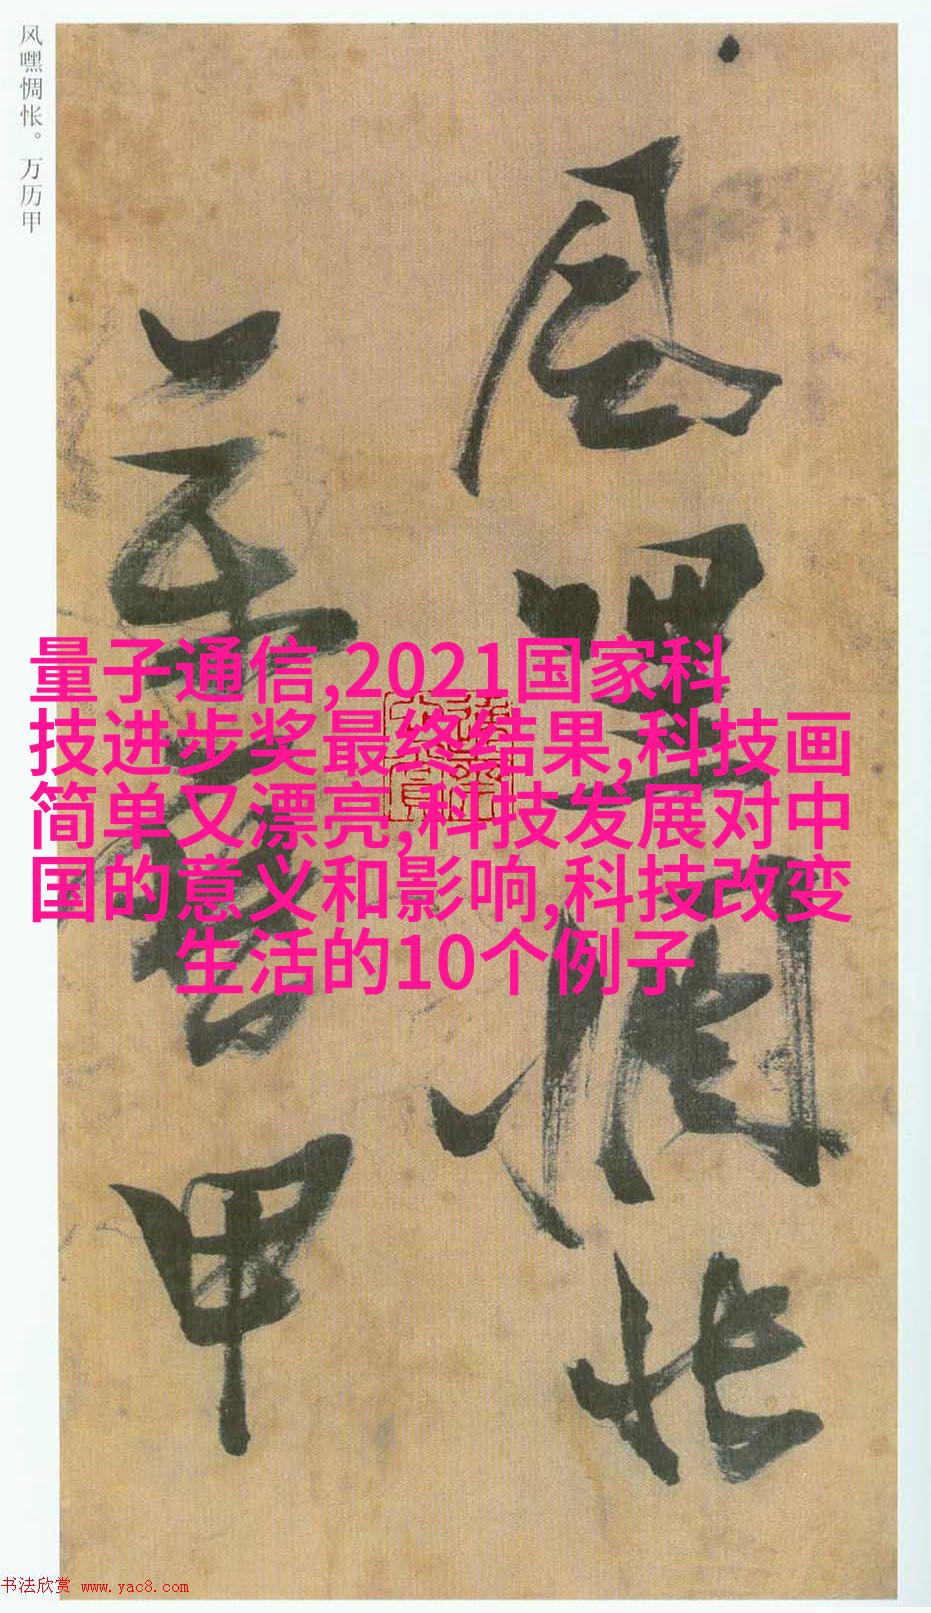 风嘿惆怅。万历甲
风嘿惆怅
万历甲
量子通信,2021国家科
技进步奖最终结果,科技画
简单又漂亮,科技发展对中
国的意义和影响,科技改变
生活的10个例子
书法欣赏 www.yac8.com